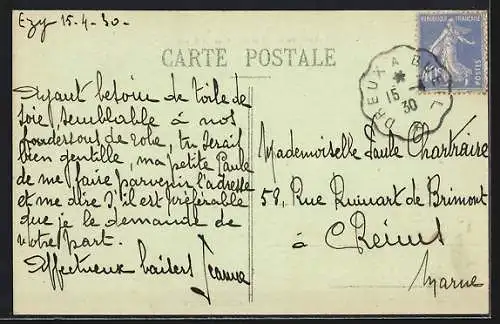 Ezy 15-4-30-
CARTE POSTALE
RÉPUBLIQUE FRANÇAISE
POSTES
DREUX A
15
30
Ayant besoin de toile de
soie, semblable à nos
de robe, tu serais
bien gentille, ma petite Paule
de me faire parvenir l'adresse
et me dire s'il est préférable
que je le demande de
votre part.
Affectueux baisers Jeanne
Mademoiselle Paule Chartraire
58, Rue Ruinart de Brimont
à Reims
Marne